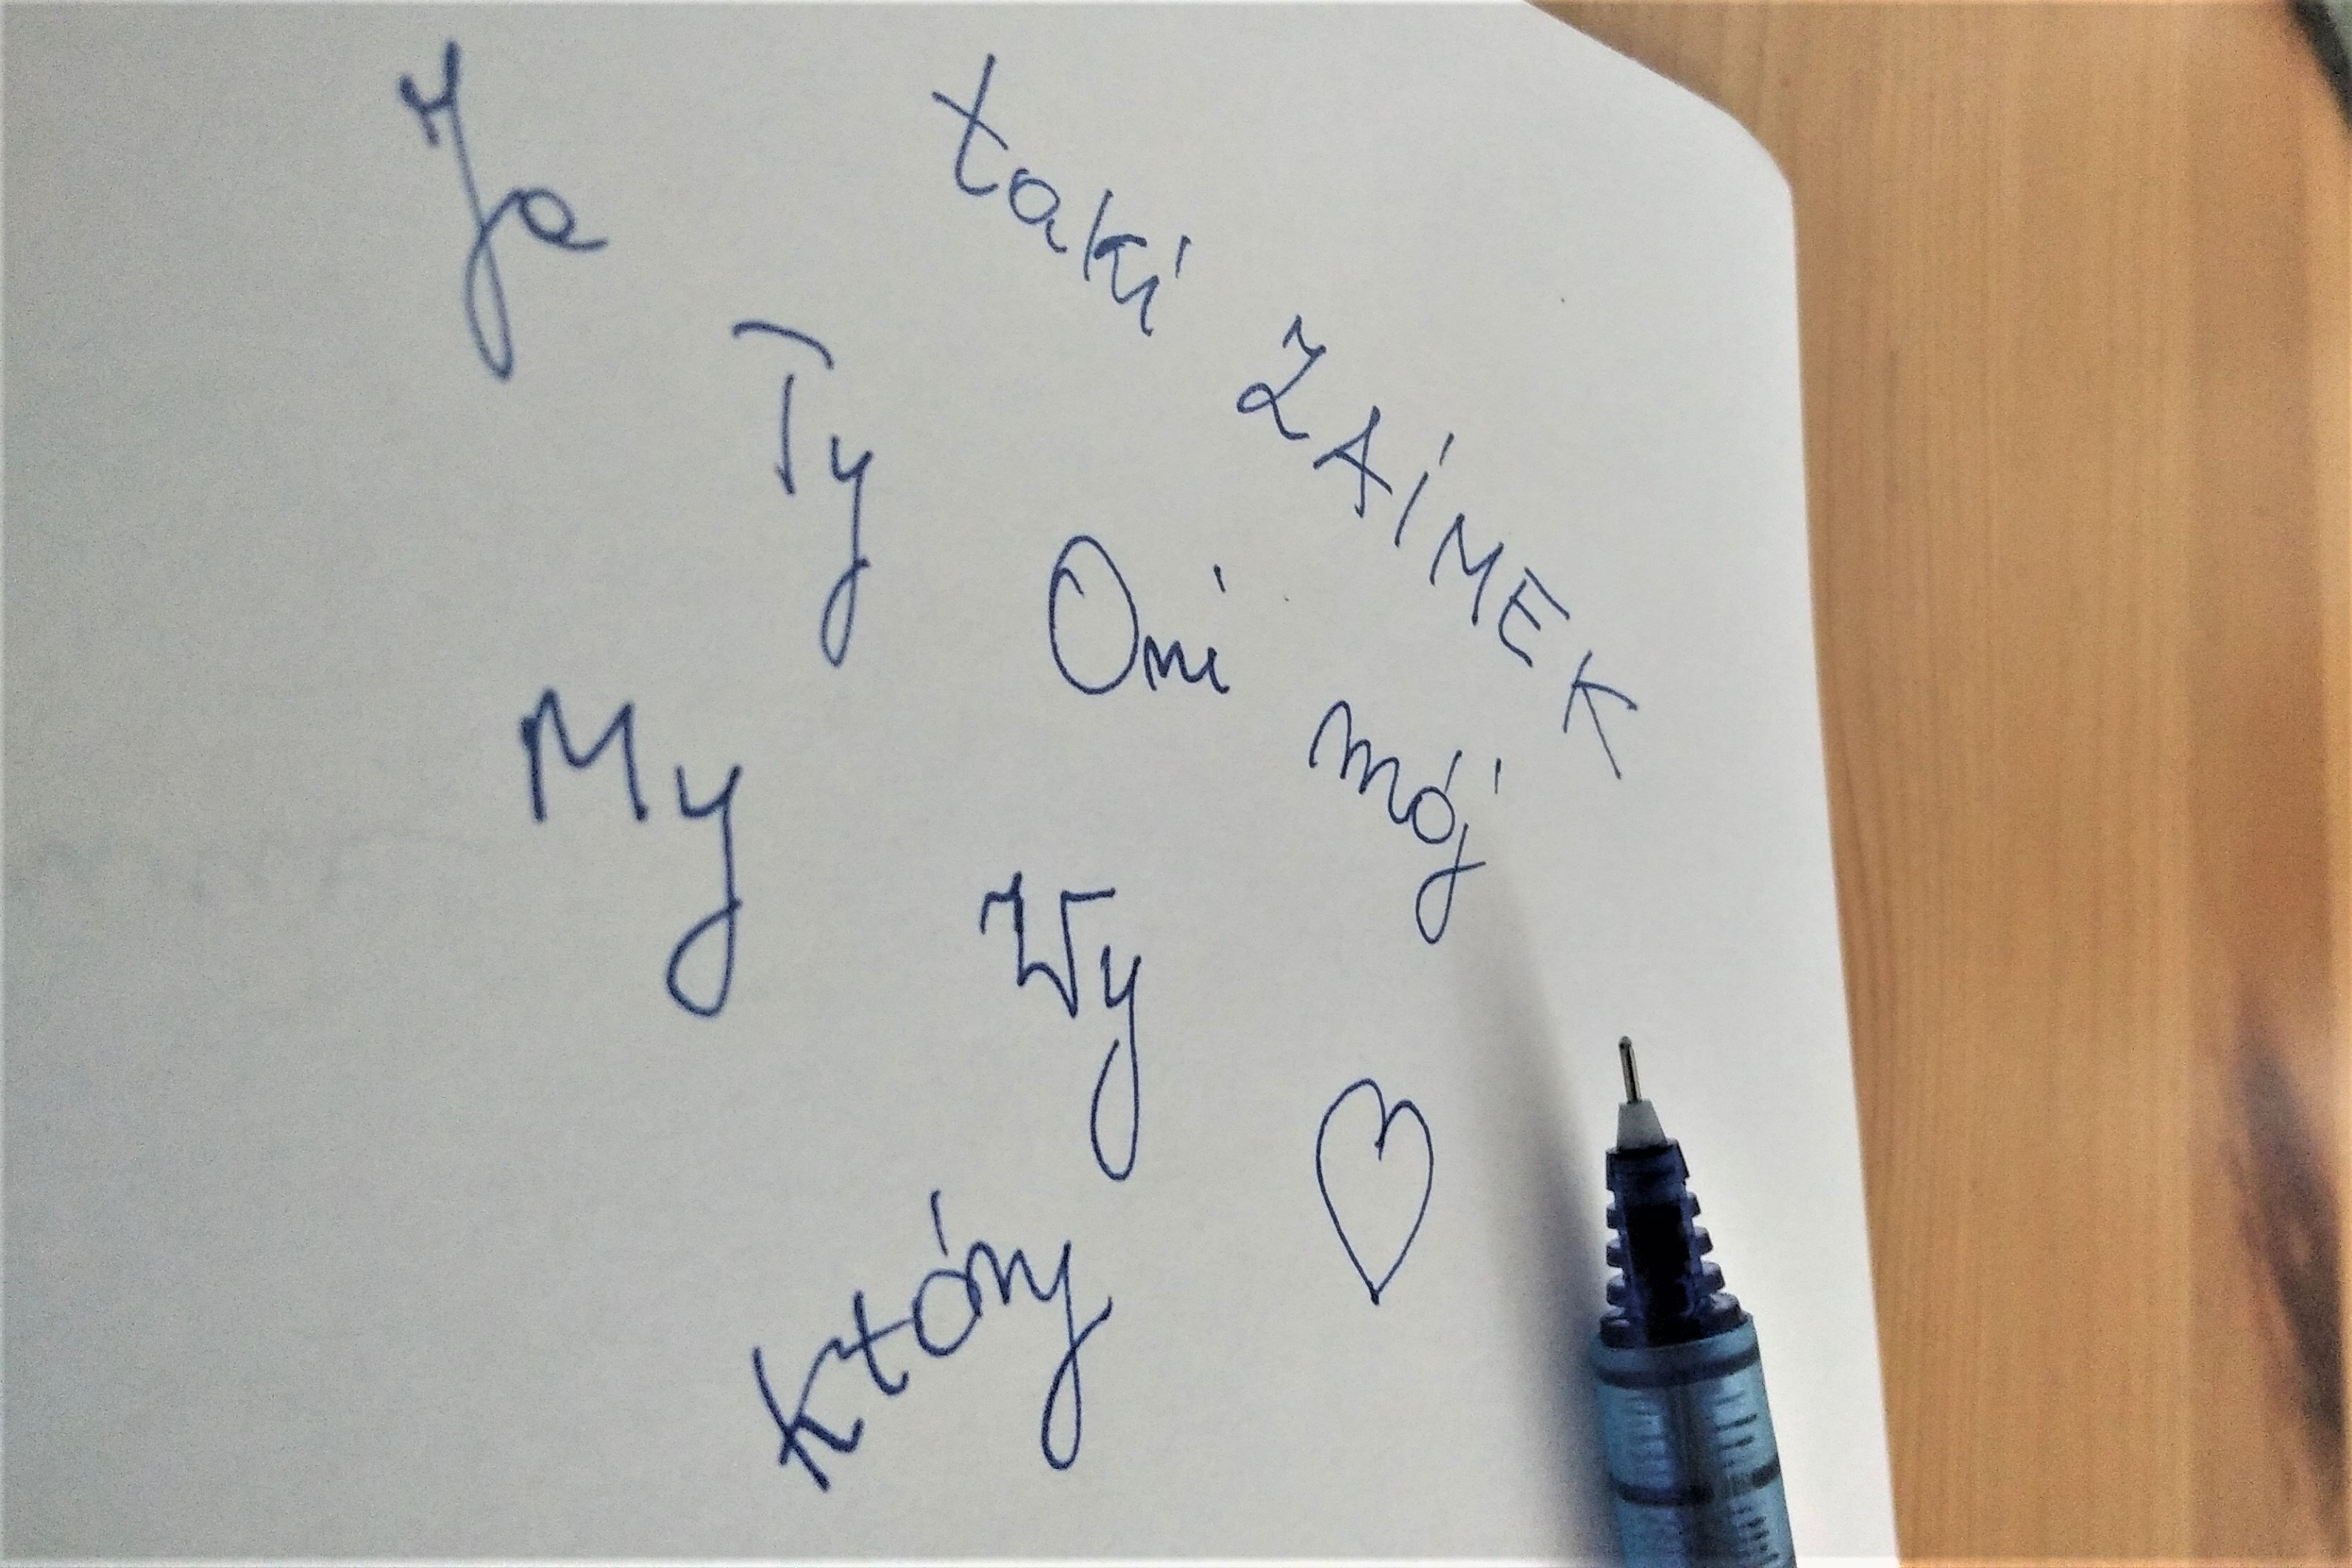 Ja
taki
ZAiMEK
Ty
Oni
mój
My
Wy
który